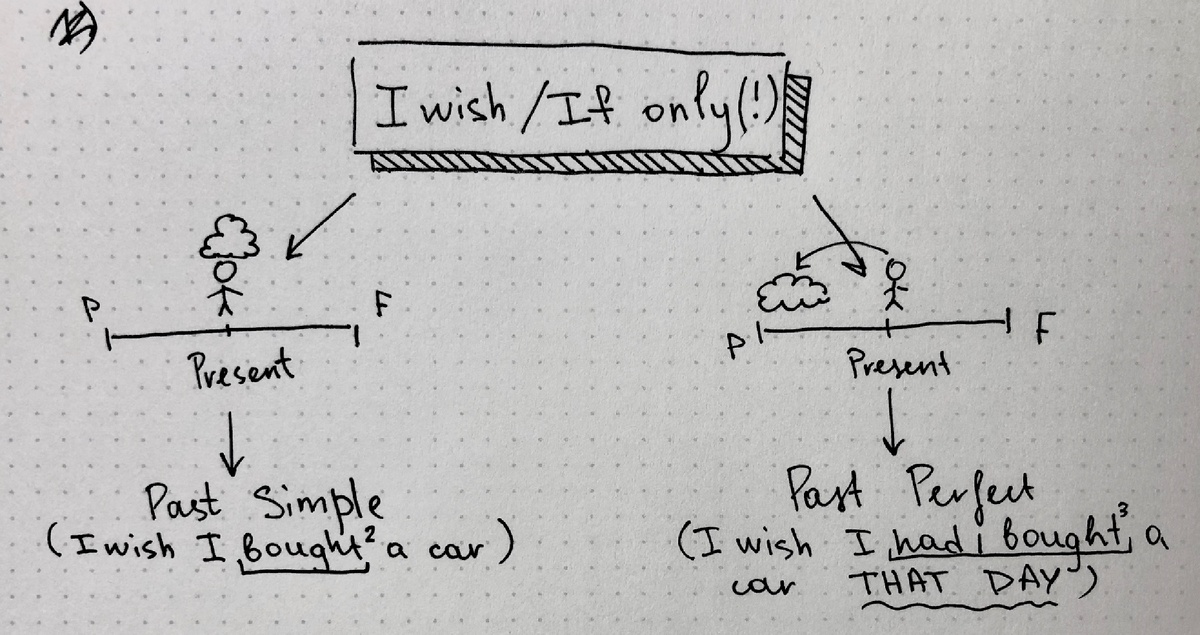 I wish / If only(!)
P
F
Present
P
F
Present
Past Simple
(I wish I bought² a car)
Past Perfect
(I wish I had bought³ a
car THAT DAY)